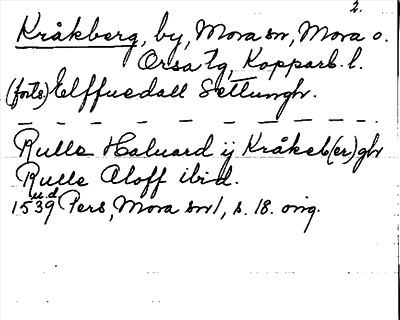 2.
Kråkberg, by, Mora sn, Mora o.
Orsa tg, Kopparb. l.
(forts) Elffuedall Settungh.
Rulle Haluard ij Kråkeb(er)gh
Rulle Aloff ibid.
u.d.
1539 Pers, Mora sn 1, s. 18. orig.